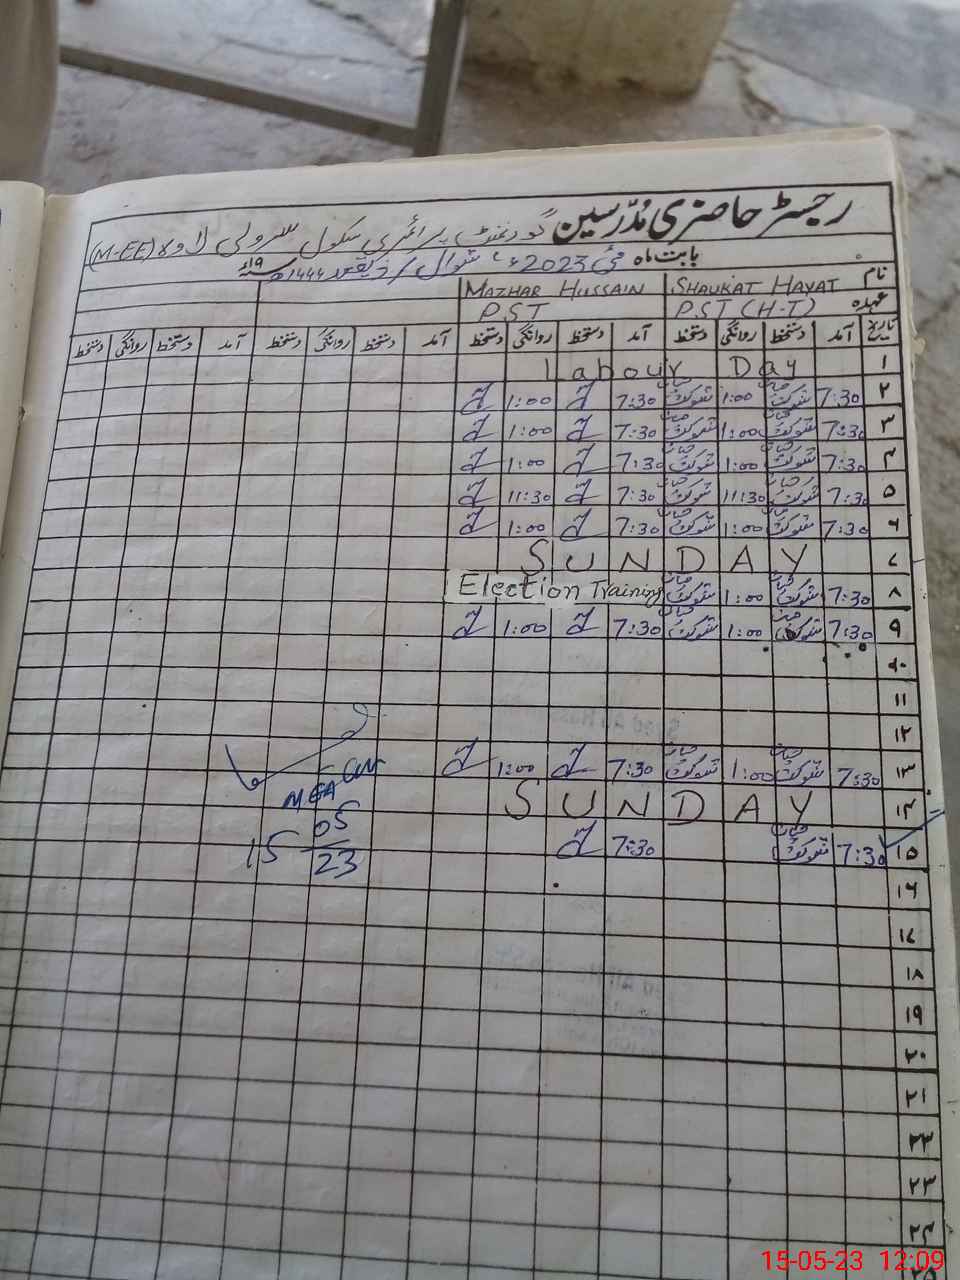 رجسٹر حاضری مُدرّسین گورنمنٹ پرائمری سکول سرولی لاوہ (M-EE)
بابت ماہ مئی 2023ء شوال / ذیقعد 1444ھ ۱۹ء
نام SHAUKAT HAYAT MAZHAR HUSSAIN
عہدہ PST (H-T) PST
تاریخ آمد دستخط روانگی دستخط آمد دستخط روانگی دستخط آمد دستخط روانگی دستخط آمد دستخط روانگی دستخط
۱ Labour Day
۲ 7:30 شوکت حیات 1:00 شوکت حیات 7:30 1:00
۳ 7:30 شوکت حیات 1:00 شوکت حیات 7:30 1:00
۴ 7:30 شوکت حیات 1:00 شوکت حیات 7:30 1:00
۵ 7:30 شوکت حیات 11:30 شوکت حیات 7:30 11:30
۶ 7:30 شوکت حیات 1:00 شوکت حیات 7:30 1:00
۷ SUNDAY
۸ 7:30 شوکت حیات 1:00 شوکت حیات Election Training
۹ 7:30 شوکت حیات 1:00 شوکت حیات 7:30 1:00
۱۰
۱۱
۱۲
۱۳ 7:30 شوکت حیات 1:00 شوکت حیات 7:30 1:00
۱۴ SUNDAY
۱۵ 7:30 شوکت حیات 7:30
MEA
15 05
23
۱۶
۱۷
۱۸
۱۹
۲۰
۲۱
۲۲
۲۳
۲۴
۲۵
15-05-23 12:09